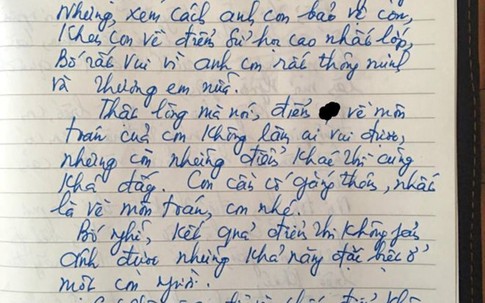 Nhưng, xem cách anh con bảo vệ con,
khen con về điểm Sử học cao nhất lớp,
Bố rất vui vì anh con rất thông minh
và thương em nữa.
Thật lòng mà nói, điểm về môn
toán của con không làm ai vui được,
nhưng còn những điểm khác thì cũng
khá đấy. Con cần cố gắng thêm, nhất
là về môn toán, con nhé.
Bố nghĩ, kết quả điểm thi không
định được những khả năng đặc biệt ở
một con người.